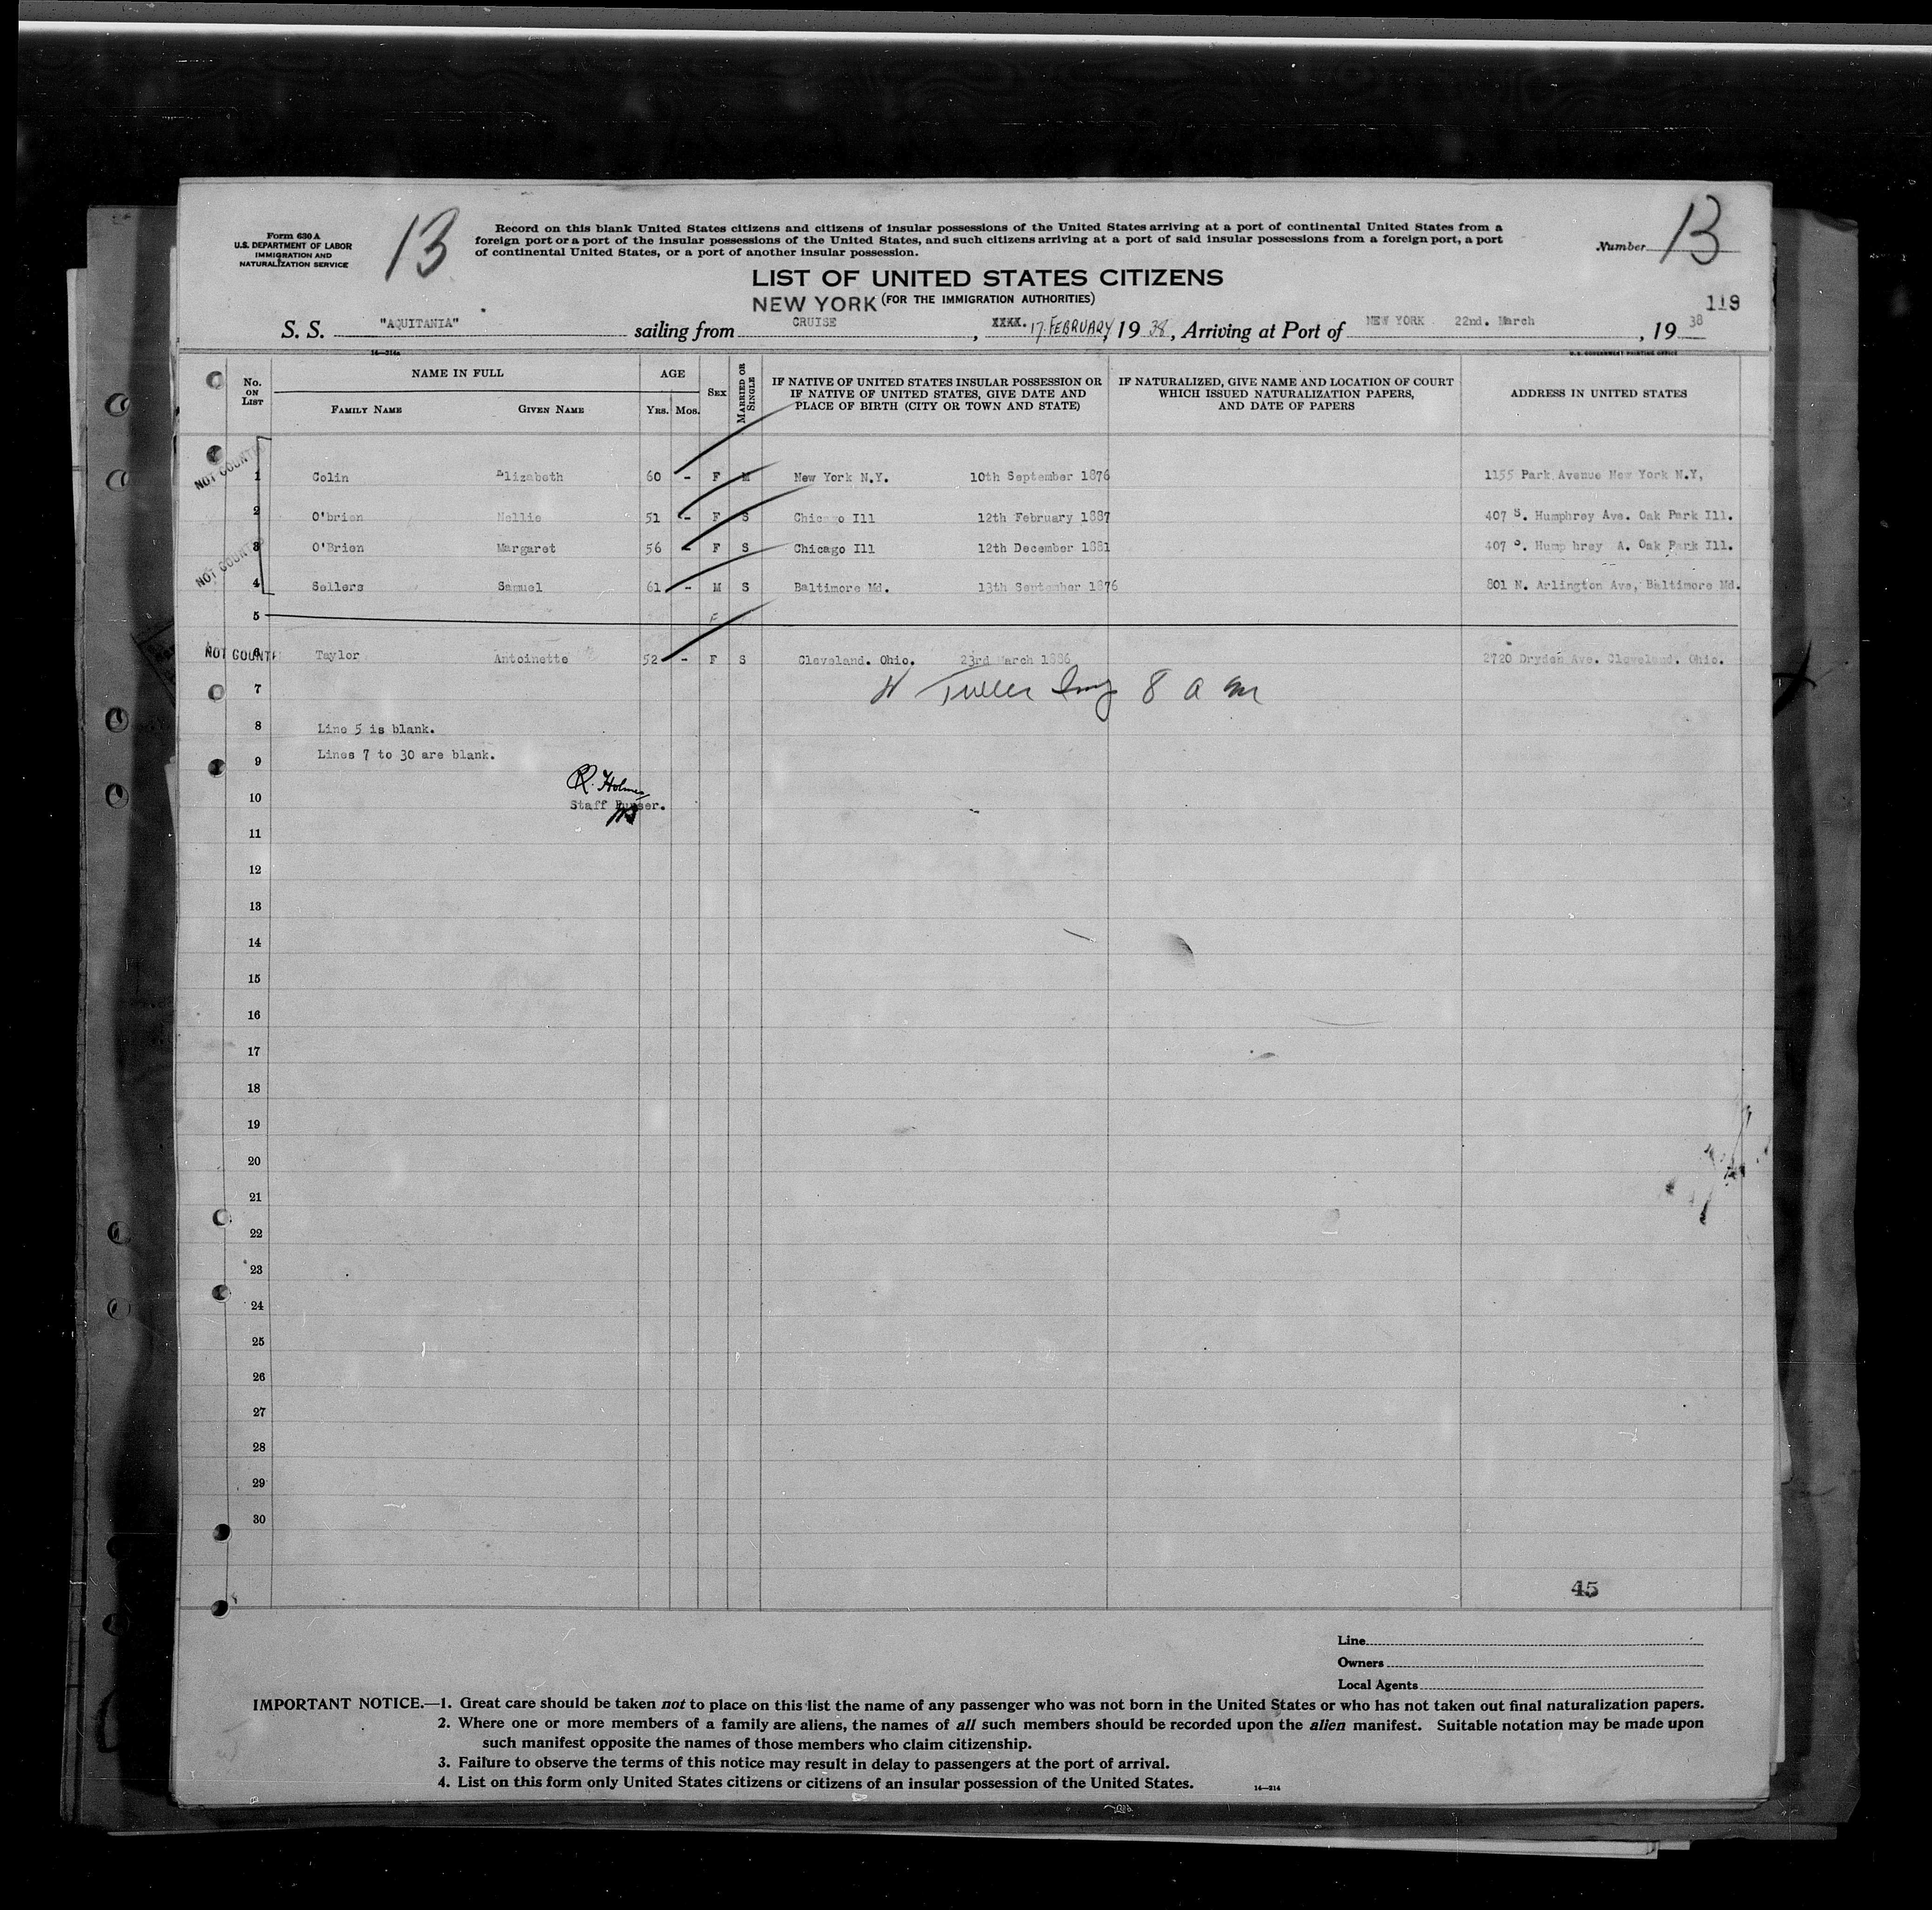 Form 630 A
U.S. DEPARTMENT OF LABOR
IMMIGRATION AND
NATURALIZATION SERVICE
13
Record on this blank United States citizens and citizens of insular possessions of the United States arriving at a port of continental United States from a
foreign port or a port of the insular possessions of the United States, and such citizens arriving at a port of said insular possessions from a foreign port, a port
of continental United States, or a port of another insular possession.
Number 13
LIST OF UNITED STATES CITIZENS
NEW YORK (FOR THE IMMIGRATION AUTHORITIES)
119
S. S. "AQUITANIA" sailing from CRUISE, XXXX. 17 FEBRUARY, 19 38, Arriving at Port of NEW YORK 22nd. March, 19 38
14—214a
U.S. GOVERNMENT PRINTING OFFICE
No. ON LIST
NAME IN FULL
FAMILY NAME GIVEN NAME
AGE
YRS. MOS.
SEX
MARRIED OR SINGLE
IF NATIVE OF UNITED STATES INSULAR POSSESSION OR
IF NATIVE OF UNITED STATES, GIVE DATE AND
PLACE OF BIRTH (CITY OR TOWN AND STATE)
IF NATURALIZED, GIVE NAME AND LOCATION OF COURT
WHICH ISSUED NATURALIZATION PAPERS,
AND DATE OF PAPERS
ADDRESS IN UNITED STATES
NOT COUNTED
1 Colin Elizabeth 60 - F M New York N.Y. 10th September 1876 1155 Park Avenue New York N.Y,
2 O'brien Nellie 51 - F S Chicago Ill 12th February 1887 407 S. Humphrey Ave. Oak Park Ill.
3 O'Brien Margaret 56 - F S Chicago Ill 12th December 1881 407 S. Hump hrey A. Oak Park Ill.
NOT COUNTED
4 Sellers Samuel 61 - M S Baltimore Md. 13th September 1876 801 N. Arlington Ave, Baltimore Md.
5 F
NOT COUNTE
6 Taylor Antoinette 52 - F S Cleveland. Ohio. 23rd March 1886 2720 Dryden Ave. Cleveland. Ohio.
7 8 a m
8 Line 5 is blank.
9 Lines 7 to 30 are blank.
R. Holmes
10 Staff Purser.
11
12
13
14
15
16
17
18
19
20
21
22
23
24
25
26
27
28
29
30
45
Line
Owners
Local Agents
IMPORTANT NOTICE.—1. Great care should be taken not to place on this list the name of any passenger who was not born in the United States or who has not taken out final naturalization papers.
2. Where one or more members of a family are aliens, the names of all such members should be recorded upon the alien manifest. Suitable notation may be made upon
such manifest opposite the names of those members who claim citizenship.
3. Failure to observe the terms of this notice may result in delay to passengers at the port of arrival.
4. List on this form only United States citizens or citizens of an insular possession of the United States.
14—214